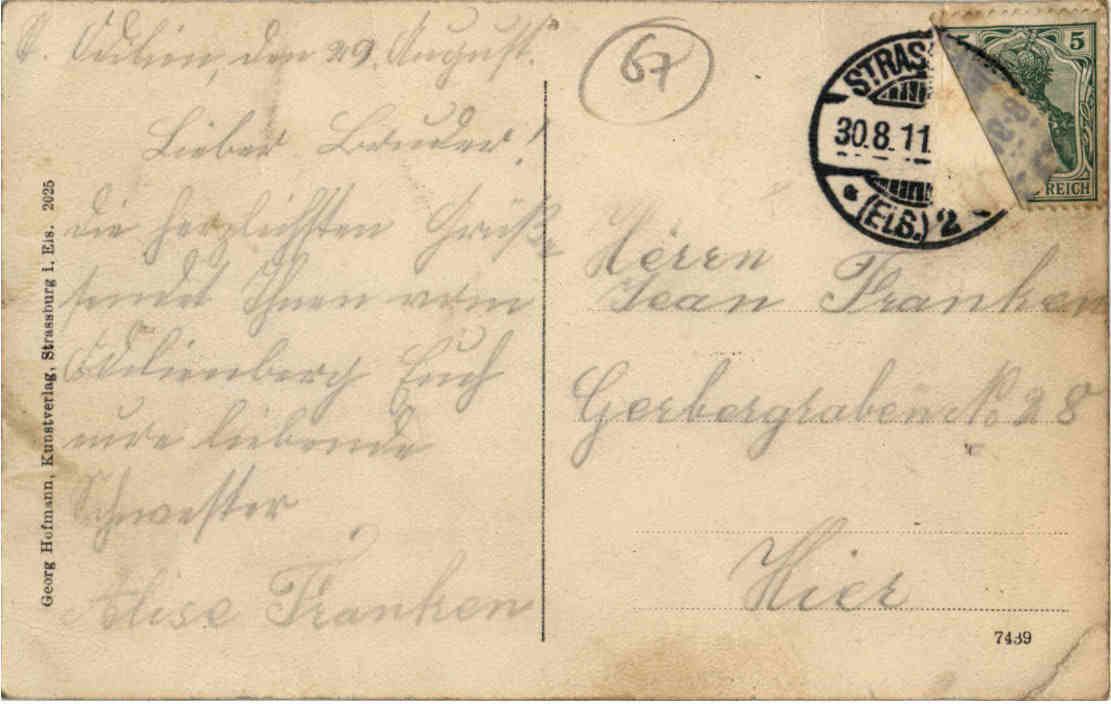 St. Odilien, den 29. August.
Lieber Bruder!
die herzlichsten Grüße
sendet Ihnen vom
Odilienberg Euch
eure liebende
Schwester
Alise Franken
Georg Hofmann, Kunstverlag, Strassburg i. Els. 2025
67
STRAS
30.8.11
(ELS.) 2
5
REICH
Herrn
Jean Franken
Gerbergraben No 28
Hier
7439